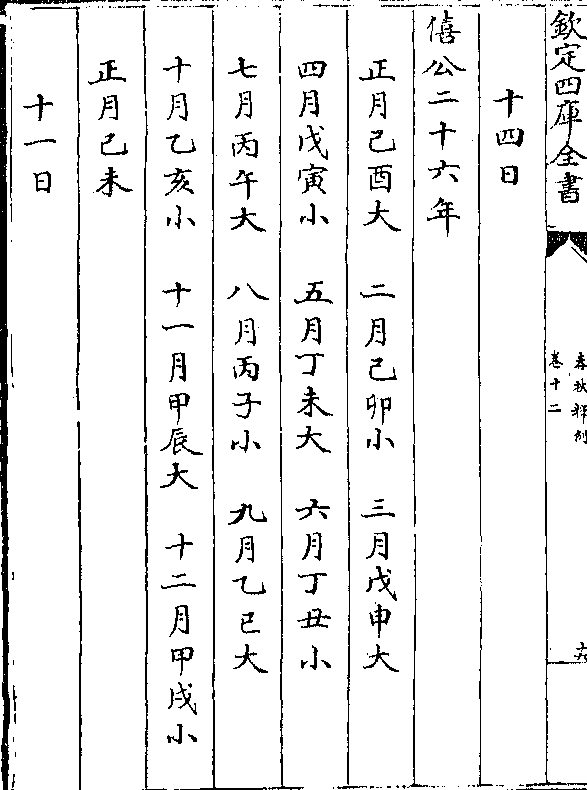 欽定四庫全書
春秋釋例
卷十二
十四日
僖公二十六年
正月己酉大 二月己卯小 三月戊申大
四月戊寅小 五月丁未大 六月丁丑小
七月丙午大 八月丙子小 九月乙巳大
十月乙亥小 十一月甲辰大 十二月甲戌小
正月己未
十一日